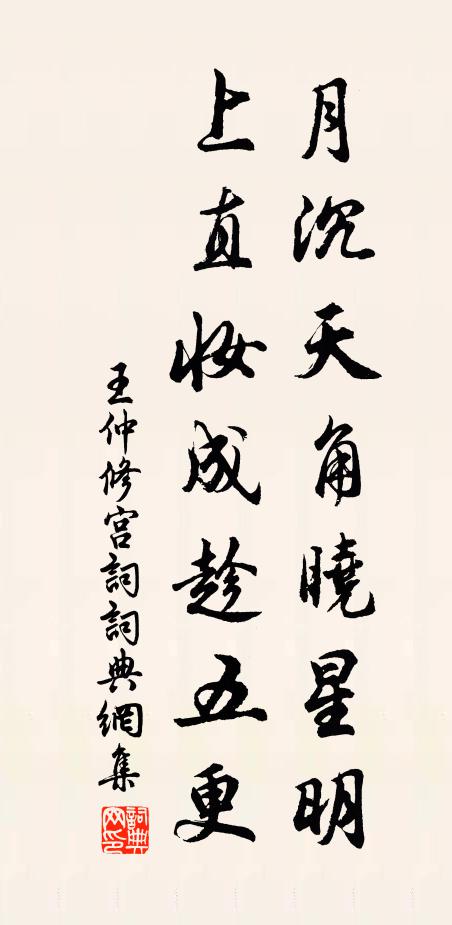 月沉天角曉星明
上直妝成趁五更
王仲修宮詞詞典網集
詞典网印